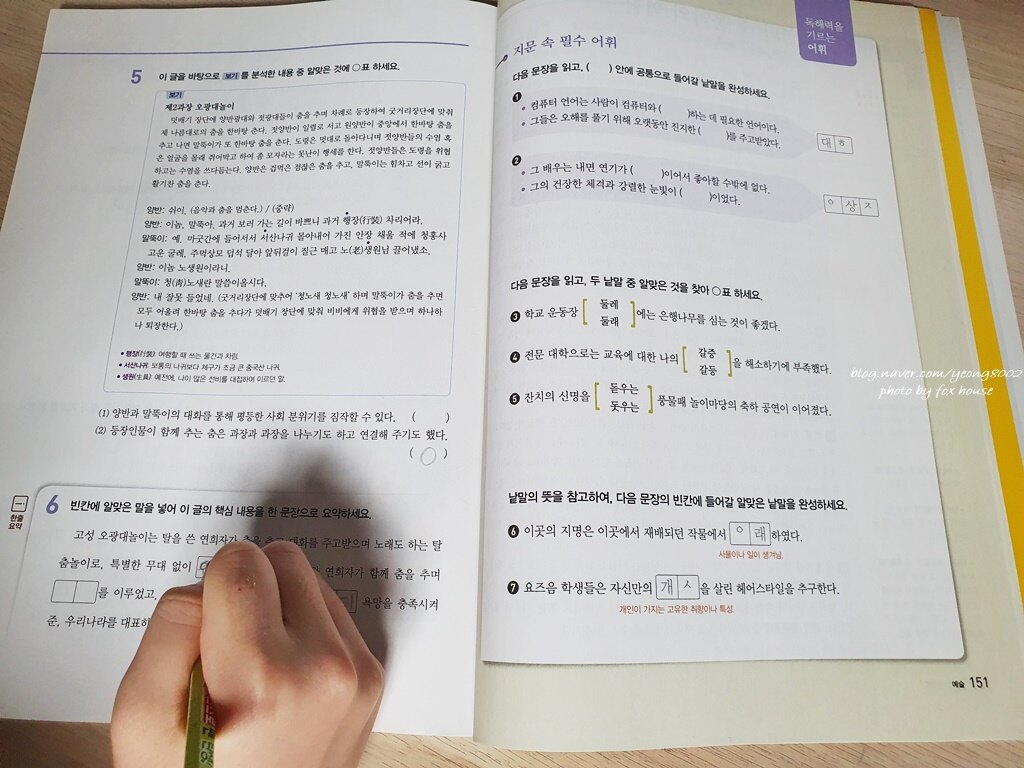 5 이 글을 바탕으로 보기 를 분석한 내용 중 알맞은 것에 ○표 하세요.
보기
제2과장 오광대놀이
덧배기 장단에 양반광대와 젓광대들이 춤을 추며 차례로 등장하여 굿거리장단에 맞춰
제 나름대로의 춤을 한바탕 춘다. 젓양반이 일렬로 서고 원양반이 중앙에서 한바탕 춤을
추고 나면 말뚝이가 또 한바탕 춤을 춘다. 도령은 멋대로 돌아다니며 젓양반들의 수염 혹
은 얼굴을 몰래 쥐어박고 하여 좀 모자라는 못난이 행세를 한다. 젓양반들은 도령을 위협
하고는 수염을 쓰다듬는다. 양반은 겁먹은 점잖은 춤을 추고, 말뚝이는 힘차고 선이 굵고
활기찬 춤을 춘다.
양반: 쉬이. (음악과 춤을 멈춘다.) / (중략)
양반: 이놈, 말뚝아. 과거 보러 가는 길이 바쁘니 과거 행장(行裝) 차리어라.
말뚝이: 예. 마굿간에 들어서서 서산나귀 몰아내어 가진 안장 채울 적에 청홍사
고운 굴레, 주먹상모 덥석 달아 앞뒤걸이 질근 매고 노(老)생원님 끌어냈소.
양반: 이놈 노생원이라니.
말뚝이: 청(靑)노새란 말씀이올시다.
양반: 내 잘못 들었네. (굿거리장단에 맞추어 '청노새 청노새' 하며 말뚝이가 춤을 추면
모두 어울려 한바탕 춤을 추다가 덧배기 장단에 맞춰 비비에게 위협을 받으며 하나하
나 퇴장한다.)
• 행장(行裝): 여행할 때 쓰는 물건과 차림.
• 서산나귀: 보통의 나귀보다 체구가 조금 큰 중국산 나귀.
• 생원(生員): 예전에, 나이 많은 선비를 대접하여 이르던 말.
(1) 양반과 말뚝이의 대화를 통해 평등한 사회 분위기를 짐작할 수 있다. ( )
(2) 등장인물이 함께 추는 춤은 과장과 과장을 나누기도 하고 연결해 주기도 했다.
( ○ )
한줄
요약
6 빈칸에 알맞은 말을 넣어 이 글의 핵심 내용을 한 문장으로 요약하세요.
고성 오광대놀이는 탈을 쓴 연희자가 춤을 추고 대화를 주고받으며 노래도 하는 탈
춤놀이로, 특별한 무대 없이 연희자가 함께 춤을 추며
를 이루었고, 욕망을 충족시켜
준, 우리나라를 대표하
독해력을
기르는
어휘
지문 속 필수 어휘
다음 문장을 읽고, ( ) 안에 공통으로 들어갈 낱말을 완성하세요.
1
• 컴퓨터 언어는 사람이 컴퓨터와 ( )하는 데 필요한 언어이다.
• 그들은 오해를 풀기 위해 오랫동안 진지한 ( )를 주고받았다.
대ㅎ
2
• 그 배우는 내면 연기가 ( )이어서 좋아할 수밖에 없다.
• 그의 건장한 체격과 강렬한 눈빛이 ( )이었다.
ㅇ상ㅈ
다음 문장을 읽고, 두 낱말 중 알맞은 것을 찾아 ○표 하세요.
3 학교 운동장 [ 둘레 둘래 ] 에는 은행나무를 심는 것이 좋겠다.
4 전문 대학으로는 교육에 대한 나의 [ 갈증 갈등 ] 을 해소하기에 부족했다.
5 잔치의 신명을 [ 돋우는 돗우는 ] 풍물패 놀이마당의 축하 공연이 이어졌다.
낱말의 뜻을 참고하여, 다음 문장의 빈칸에 들어갈 알맞은 낱말을 완성하세요.
6 이곳의 지명은 이곳에서 재배되던 작물에서 ㅇ래 하였다.
사물이나 일이 생겨남.
7 요즈음 학생들은 자신만의 개ㅅ 을 살린 헤어스타일을 추구한다.
개인이 가지는 고유한 취향이나 특성.
예술 151
blog.naver.com/yeong8002
photo by fox house